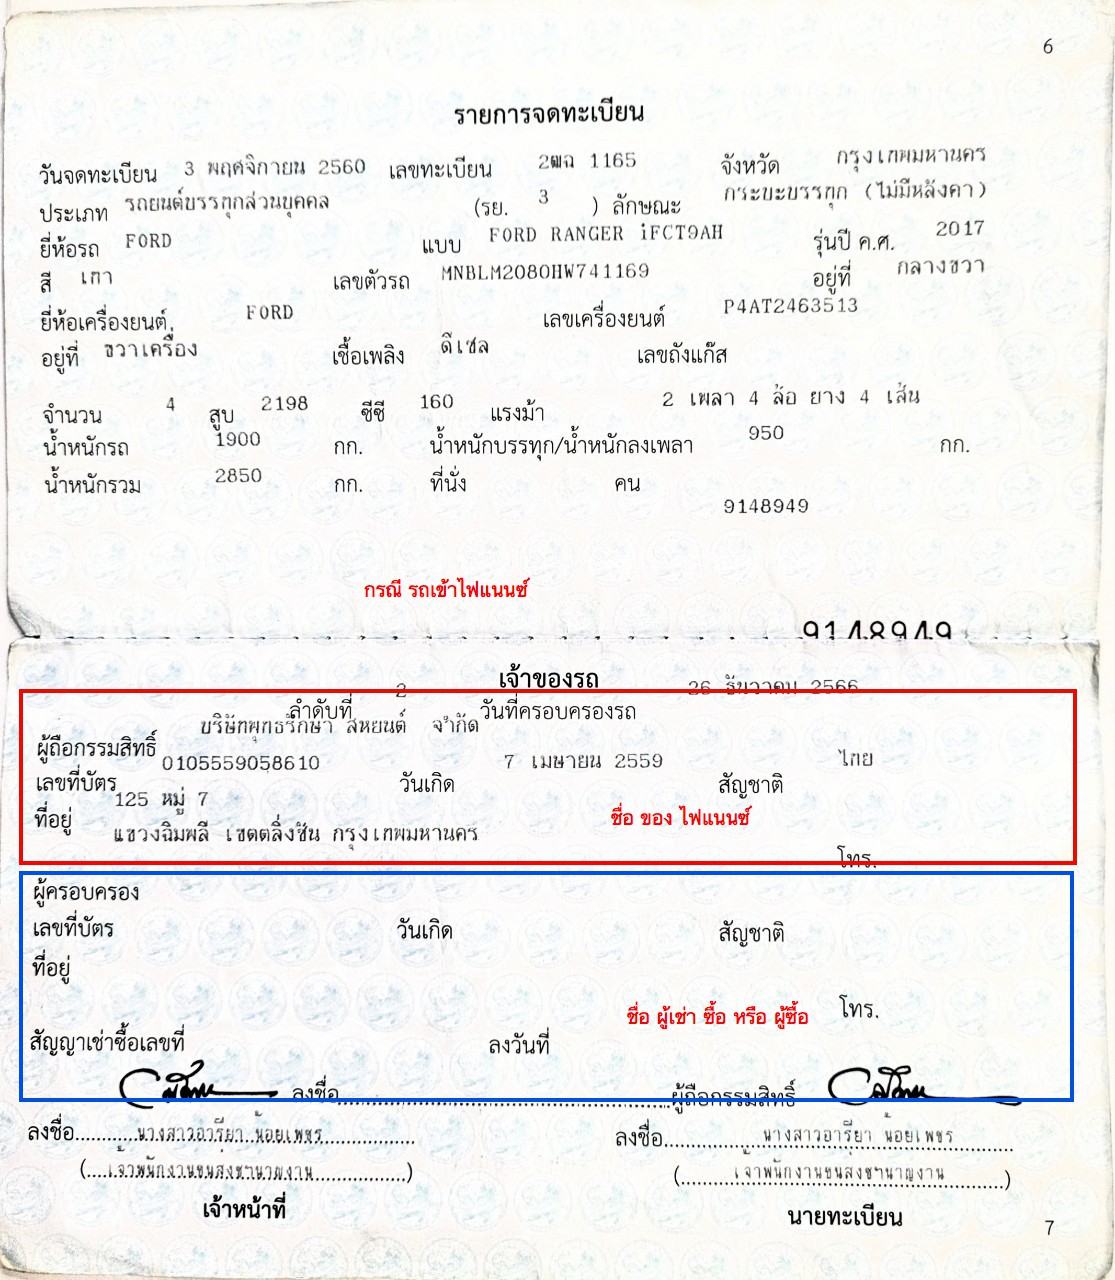 6
รายการจดทะเบียน
วันจดทะเบียน 3 พฤศจิกายน 2560 เลขทะเบียน 2ฒฉ 1165 จังหวัด กรุงเทพมหานคร
ประเภท รถยนต์บรรทุกส่วนบุคคล (รย. 3 ) ลักษณะ กระบะบรรทุก (ไม่มีหลังคา)
ยี่ห้อรถ FORD แบบ FORD RANGER iFCT9AH รุ่นปี ค.ศ. 2017
สี เทา เลขตัวรถ MNBLM2080HW741169 อยู่ที่ กลางขวา
ยี่ห้อเครื่องยนต์ FORD เลขเครื่องยนต์ P4AT2463513
อยู่ที่ ขวาเครื่อง เชื้อเพลิง ดีเซล เลขถังแก๊ส
จำนวน 4 สูบ 2198 ซีซี 160 แรงม้า 2 เพลา 4 ล้อ ยาง 4 เส้น
น้ำหนักรถ 1900 กก. น้ำหนักบรรทุก/น้ำหนักลงเพลา 950 กก.
น้ำหนักรวม 2850 กก. ที่นั่ง คน
9148949
กรณี รถเข้าไฟแนนซ์
9148949
เจ้าของรถ
ลำดับที่ 2 วันที่ครอบครองรถ 26 ธันวาคม 2566
ผู้ถือกรรมสิทธิ์ บริษัทพุทธรักษา สหยนต์ จำกัด
เลขที่บัตร 0105559058610 วันเกิด 7 เมษายน 2559 สัญชาติ ไทย
ที่อยู่ 125 หมู่ 7
แขวงฉิมพลี เขตตลิ่งชัน กรุงเทพมหานคร
ชื่อ ของ ไฟแนนซ์
โทร.
ผู้ครอบครอง
เลขที่บัตร วันเกิด สัญชาติ
ที่อยู่
ชื่อ ผู้เช่า ซื้อ หรือ ผู้ซื้อ โทร.
สัญญาเช่าซื้อเลขที่ ลงวันที่
ลงชื่อ ผู้ถือกรรมสิทธิ์
ลงชื่อ นางสาวอารียา น้อยเพชร ลงชื่อ นางสาวอารียา น้อยเพชร
(เจ้าพนักงานขนส่งชำนาญงาน) (เจ้าพนักงานขนส่งชำนาญงาน)
เจ้าหน้าที่ นายทะเบียน
7